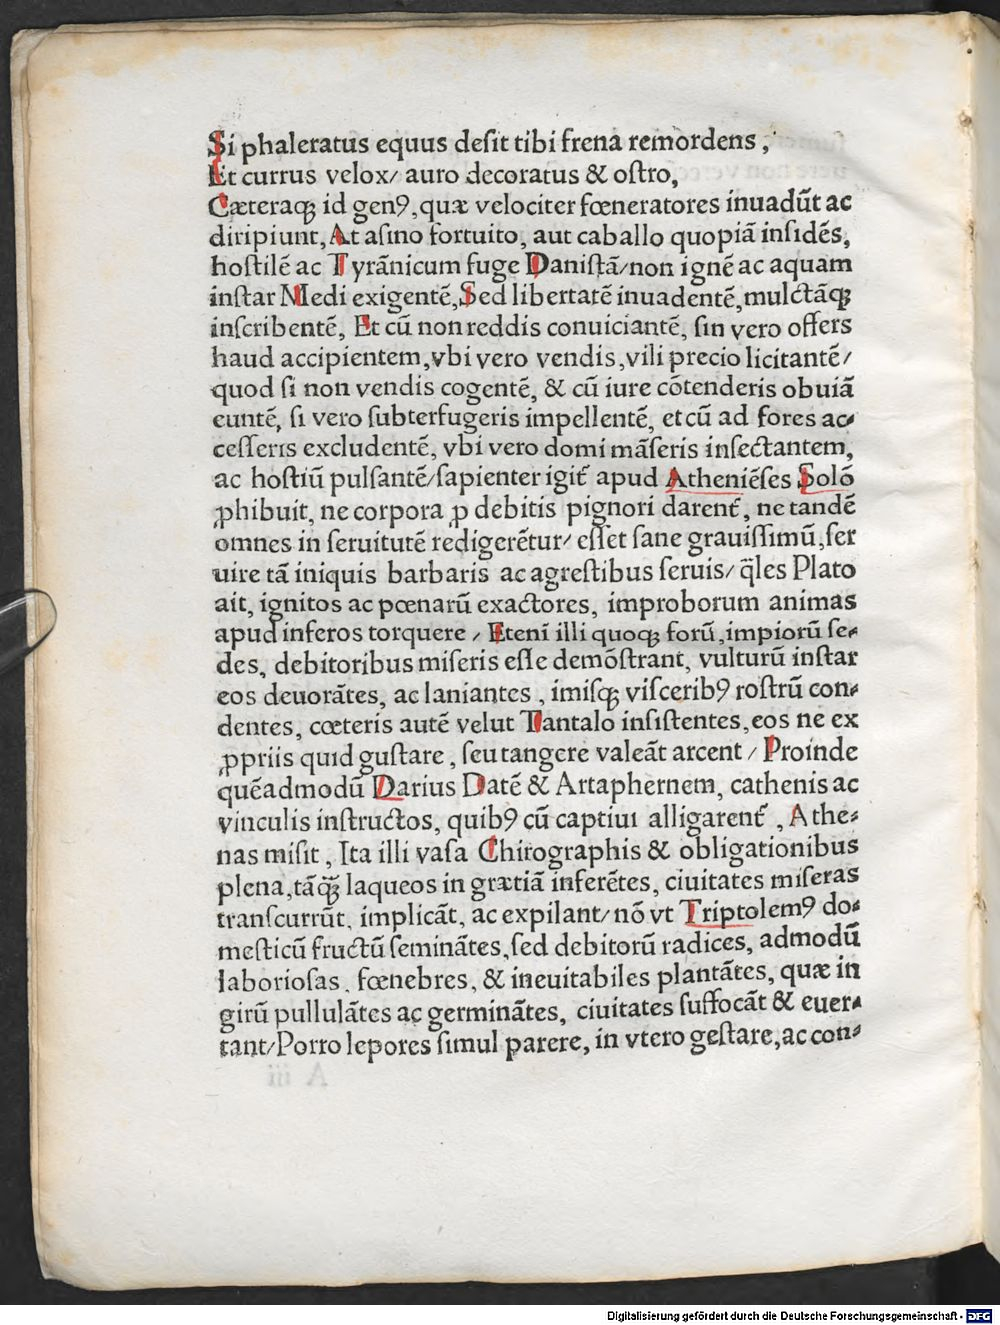 Si phaleratus equus desit tibi frena remordens,
Et currus velox/ auro decoratus & ostro,
Cæteraqꝫ id genꝰ, quæ velociter fœneratores inuadūt ac
diripiunt, At asino fortuito, aut caballo quopiā insidēs,
hostilē ac Tyrānicum fuge Danistā/ non ignē ac aquam
instar Medi exigentē, Sed libertatē inuadentē, mulctāqꝫ
inscribentē, Et cū non reddis conuiciantē, sin vero offers
haud accipientem, vbi vero vendis, vili precio licitantē/
quod si non vendis cogentē, & cū iure cōtenderis obuiā
euntē, si vero subterfugeris impellentē, et cū ad fores ac⸗
cesseris excludentē, vbi vero domi māseris insectantem,
ac hostiū pulsantē/ sapienter igit̄ apud Atheniēses Solō
ꝓhibuit, ne corpora ꝓ debitis pignori darent̄, ne tandē
omnes in seruitutē redigerētur/ esset sane grauissimū, ser
uire tā iniquis barbaris ac agrestibus seruis/ q̄les Plato
ait, ignitos ac pœnarū exactores, improborum animas
apud inferos torquere / Etenī illi quoqꝫ forū, impiorū se⸗
des, debitoribus miseris esse demōstrant, vulturū instar
eos deuorātes, ac laniantes, imisqꝫ visceribꝰ rostrū con⸗
dentes, cœteris autē velut Tantalo insistentes, eos ne ex
ꝓpriis quid gustare, seu tangere valeāt arcent / Proinde
quēadmodū Darius Datē & Artaphernem, cathenis ac
vinculis instructos, quibꝰ cū captiui alligarent̄, Athe⸗
nas misit, Ita illi vasa Chirographis & obligationibus
plena, tāqꝫ̄ laqueos in grætiā inferētes, ciuitates miseras
transcurrūt, implicāt, ac expilant/ nō vt Triptolemꝰ do⸗
mesticū fructū seminātes, sed debitorū radices, admodū
laboriosas, fœnebres, & ineuitabiles plantātes, quæ in
girū pullulātes ac germinātes, ciuitates suffocāt & euer⸗
tant/ Porro lepores simul parere, in vtero gestare, ac con⸗
A iii
Digitalisierung gefördert durch die Deutsche Forschungsgemeinschaft - DFG